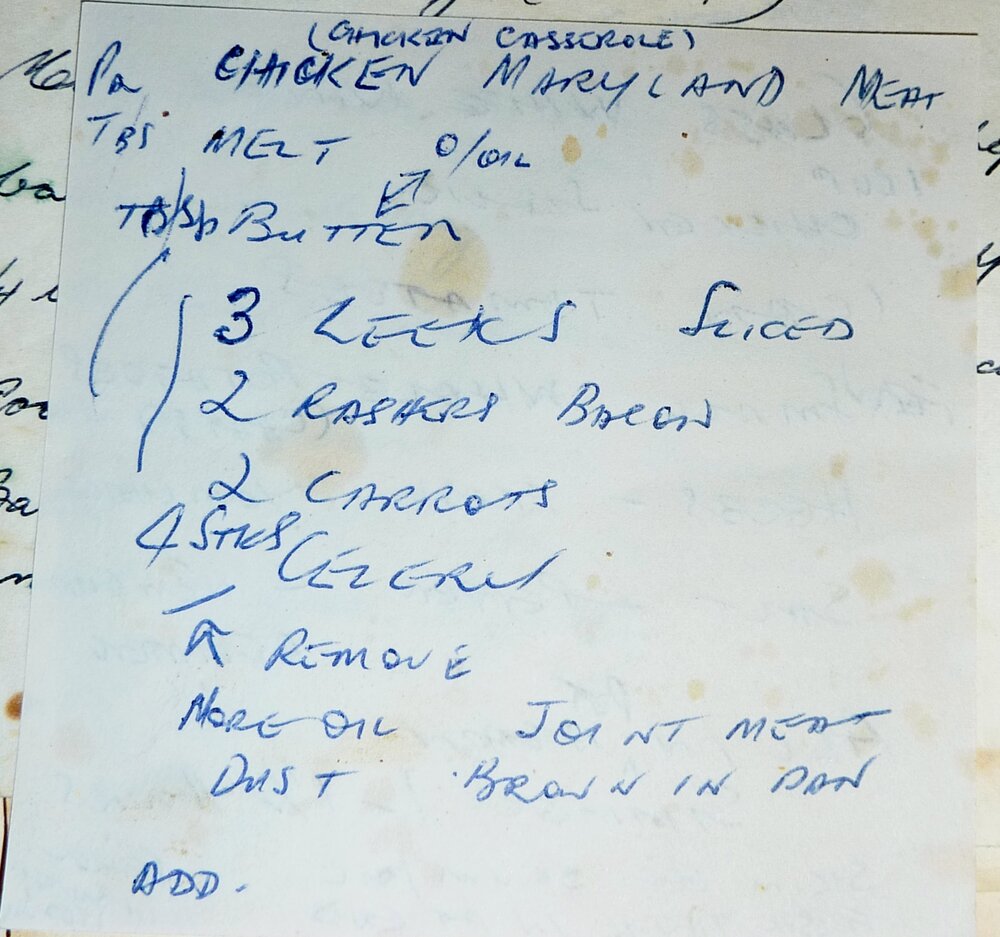 (CHICKEN CASSEROLE)
CHICKEN MARYLAND MEAT
TBS MELT O/OIL
BUTTER
3 LEEKS SLICED
2 RASHERS BACON
2 CARROTS
4 STKS CELERY
REMOVE
MORE OIL JOINT MEAT
DUST BROWN IN PAN
ADD.